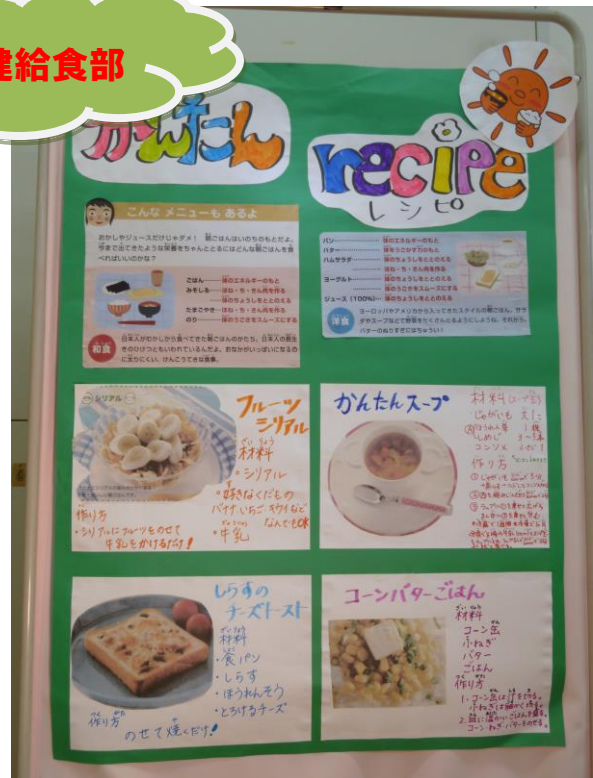 健給食部
かんたん
recipe
レシピ
こんな メニューも あるよ
おかしやジュースだけじゃダメ! 朝ごはんはいのちのもとだよ。
今まで出てきたような栄養をちゃんととるにはどんな朝ごはんを食
べればいいのかな?
ごはん 体のエネルギーのもと
みそしる ほね・ち・きん肉を作る
体のちょうしをととのえる
たまごやき ほね・ち・きん肉を作る
のり 体のうごきをスムーズにする
和食
日本人がむかしから食べてきた朝ごはんのかたち。日本人の長生
きのひけつともいわれているんだよ。おなかがいっぱいになるの
に太りにくい、けんこうてきな食事。
パン 体のエネルギーのもと
バター
ハムサラダ 体のちょうしをととのえる
ほね・ち・きん肉を作る
ヨーグルト 体のちょうしをととのえる
体のうごきをスムーズにする
ジュース(100%) 体のちょうしをととのえる
洋食
ヨーロッパやアメリカから入ってきたスタイルの朝ごはん。サラ
ダやスープなどで野菜をたくさんとるようにしようね。それから、
バターのぬりすぎにはちゅうい!
シリアル
フルーツ
シリアル
ざいりょう
材料
・シリアル
・好きなくだもの
バナナ、いちご キウイなど
なんでもOK
・牛乳
作り方
・シリアルにフルーツをのせて
牛乳をかけるだけ!
かんたんスープ
材料
じゃがいも
ほうれん草
しめじ
コンソメ
作り方
しらすの
チーズトースト
ざいりょう
材料
・食パン
・しらす
・ほうれんそう
・とろけるチーズ
作り方
のせて焼くだけ!
コーンバターごはん
ざいりょう
材料
コーン缶
小ねぎ
バター
ごはん
作り方
1. コーン缶は汁をきる。
小ねぎは細かく切る。
2. 器に温かいごはんを盛る。
コーン・ねぎ・バターをのせる。